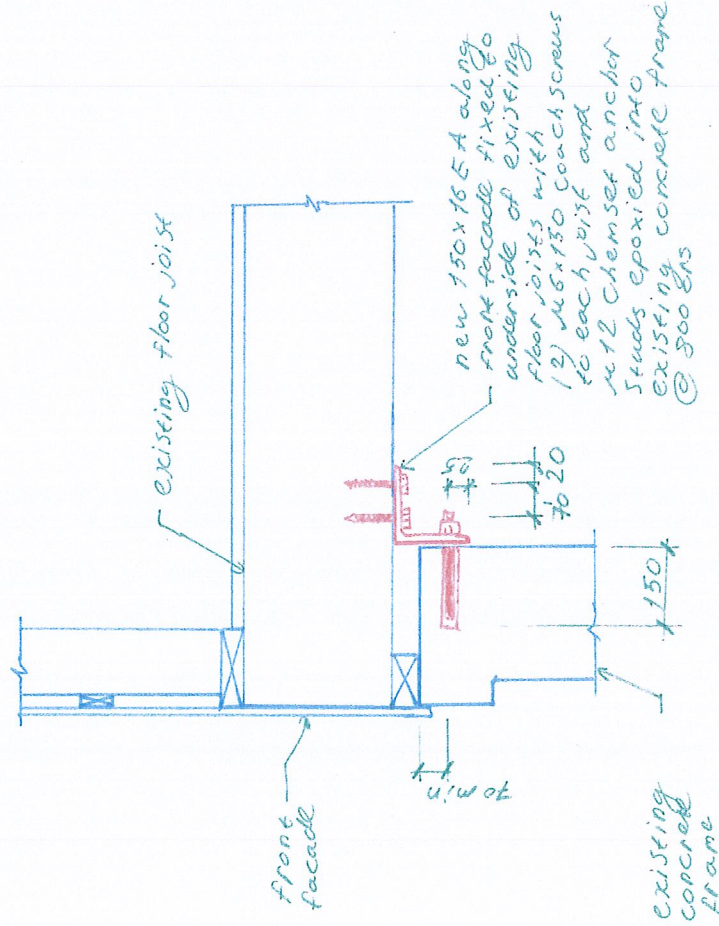 existing floor joist
front
facade
new 150x16 EA along
front facade fixed to
underside of existing
floor joists with
(2) M6x130 coachscrews
to each joist and
M12 chemset anchor
studs epoxied into
existing concrete frame
@ crs
70 20
70 min
150
existing
concrete
frame